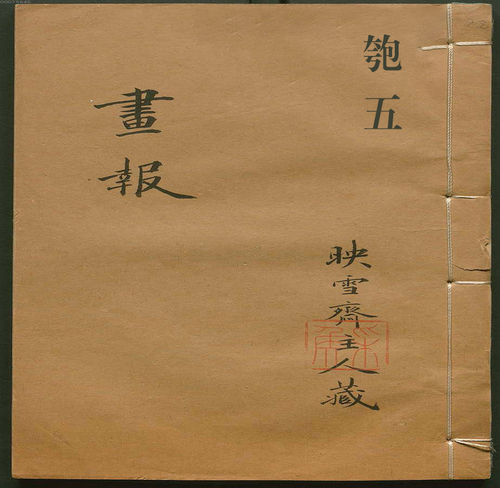 匏五
映雪齋主人藏
畫報